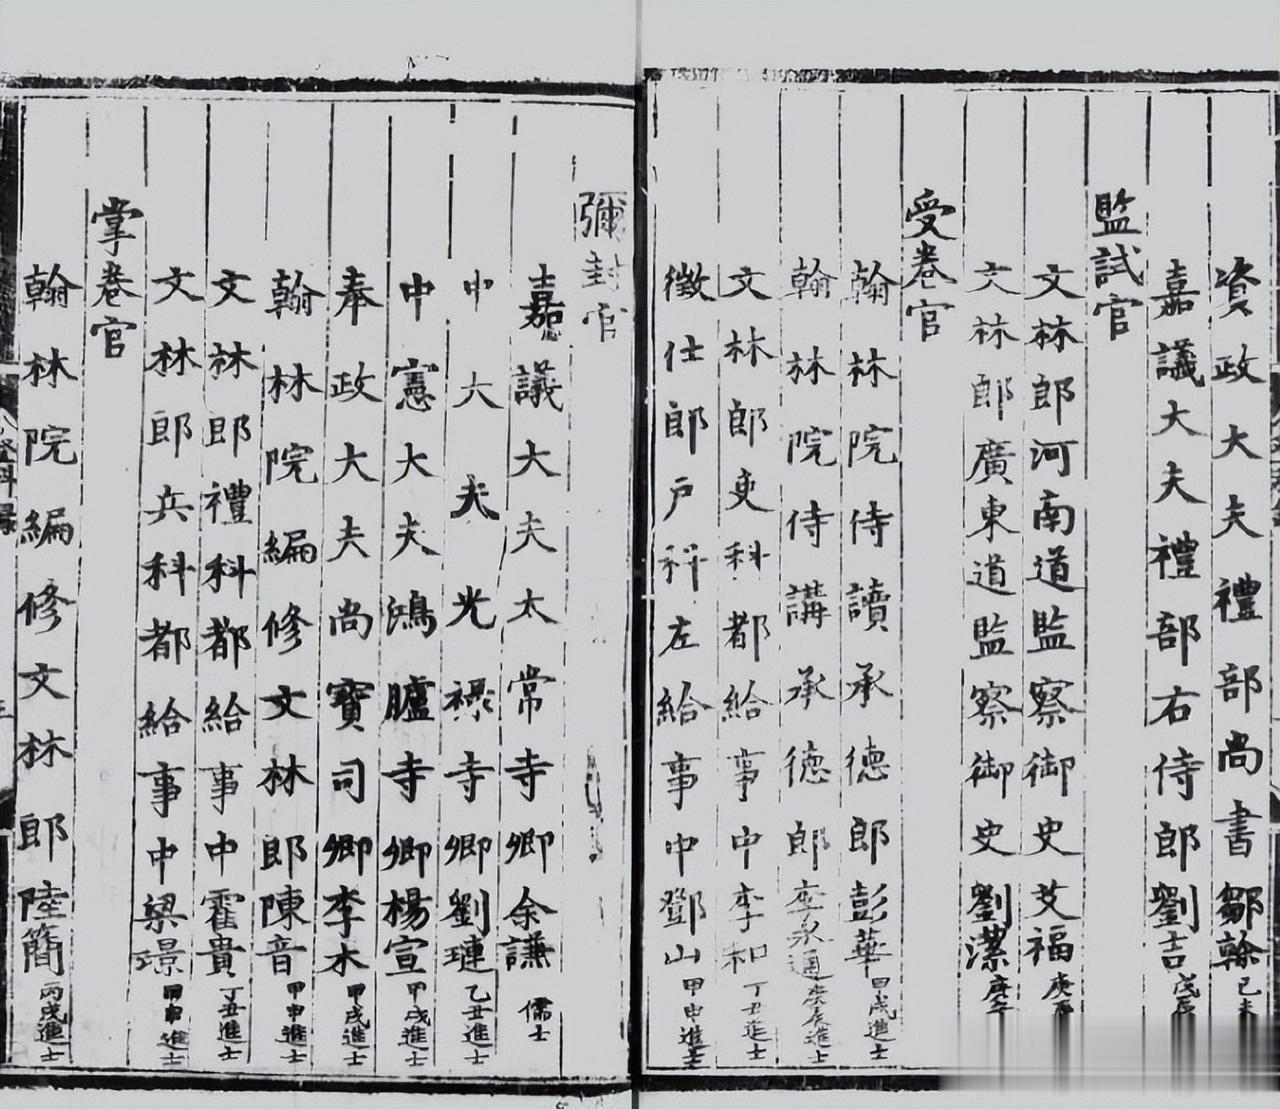 資政大夫禮部尚書鄒榦己未
嘉議大夫禮部右侍郎劉吉戊辰
監試官
文林郎河南道監察御史艾福庚
文林郎廣東道監察御史劉潔庚
受卷官
翰林院侍讀承德郎彭華甲戌進士
翰林院侍講承德郎李泉通庚辰進士
文林郎吏科都給事中李和丁丑進士
徵仕郎戶科左給事中鄧山甲申進士
彌封官
嘉議大夫太常寺卿余謙儒士
中大夫光祿寺卿劉璉乙丑進士
中憲大夫鴻臚寺卿楊宣甲戌進士
奉政大夫尚寶司卿李木甲戌進士
翰林院編修文林郎陳音甲申進士
文林郎禮科都給事中霍貴丁丑進士
文林郎兵科都給事中梁璟甲申進士
掌卷官
翰林院編修文林郎陸簡丙戌進士
登科錄